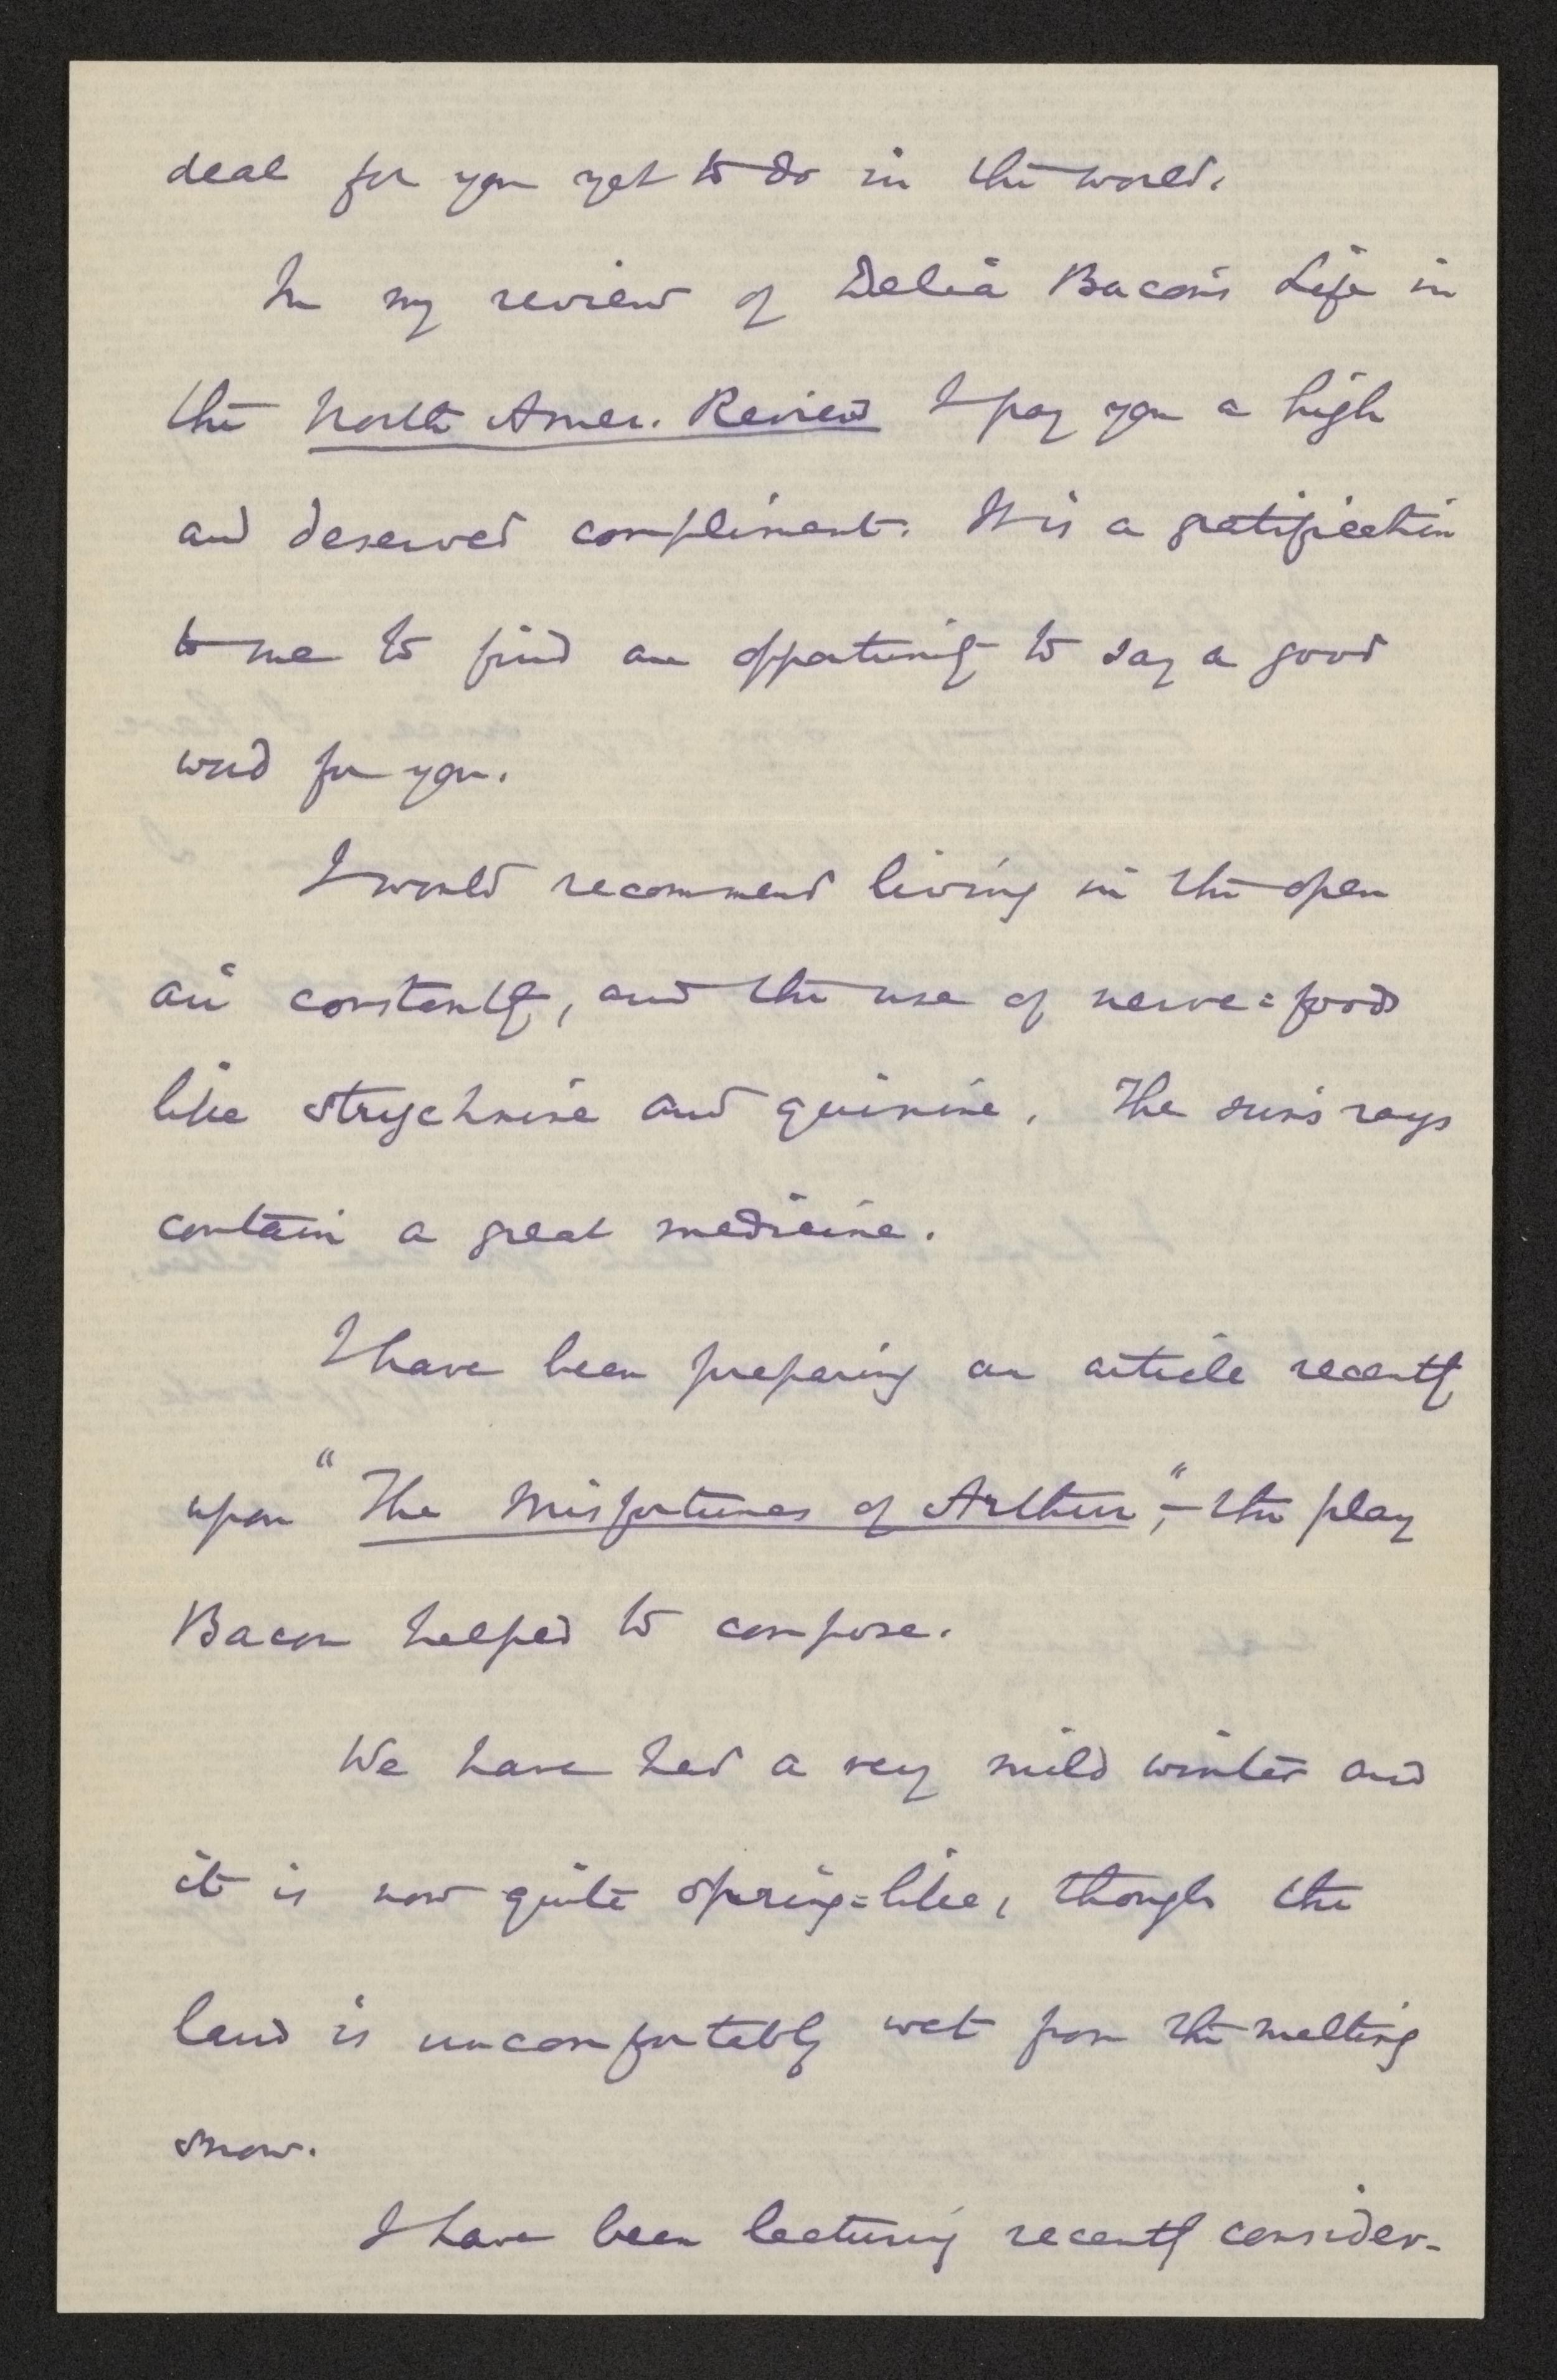 deal for you yet to do in the world.
In my review of Delia Bacon's Life in
the North Amer. Review I pay you a high
and deserved compliment. It is a gratification
to me to find an opportunity to say a good
word for you.
I would recommend living in the open
air constantly, and the use of nerve=foods
like strychnine and quinine. The sun's rays
contain a great medicine.
I have been preparing an article recently
upon "The Misfortunes of Arthur",- the play
Bacon helped to compose.
We have had a very mild winter and
it is now quite spring=like, though the
land is uncomfortably wet from the melting
snow.
I have been lecturing recently consider-